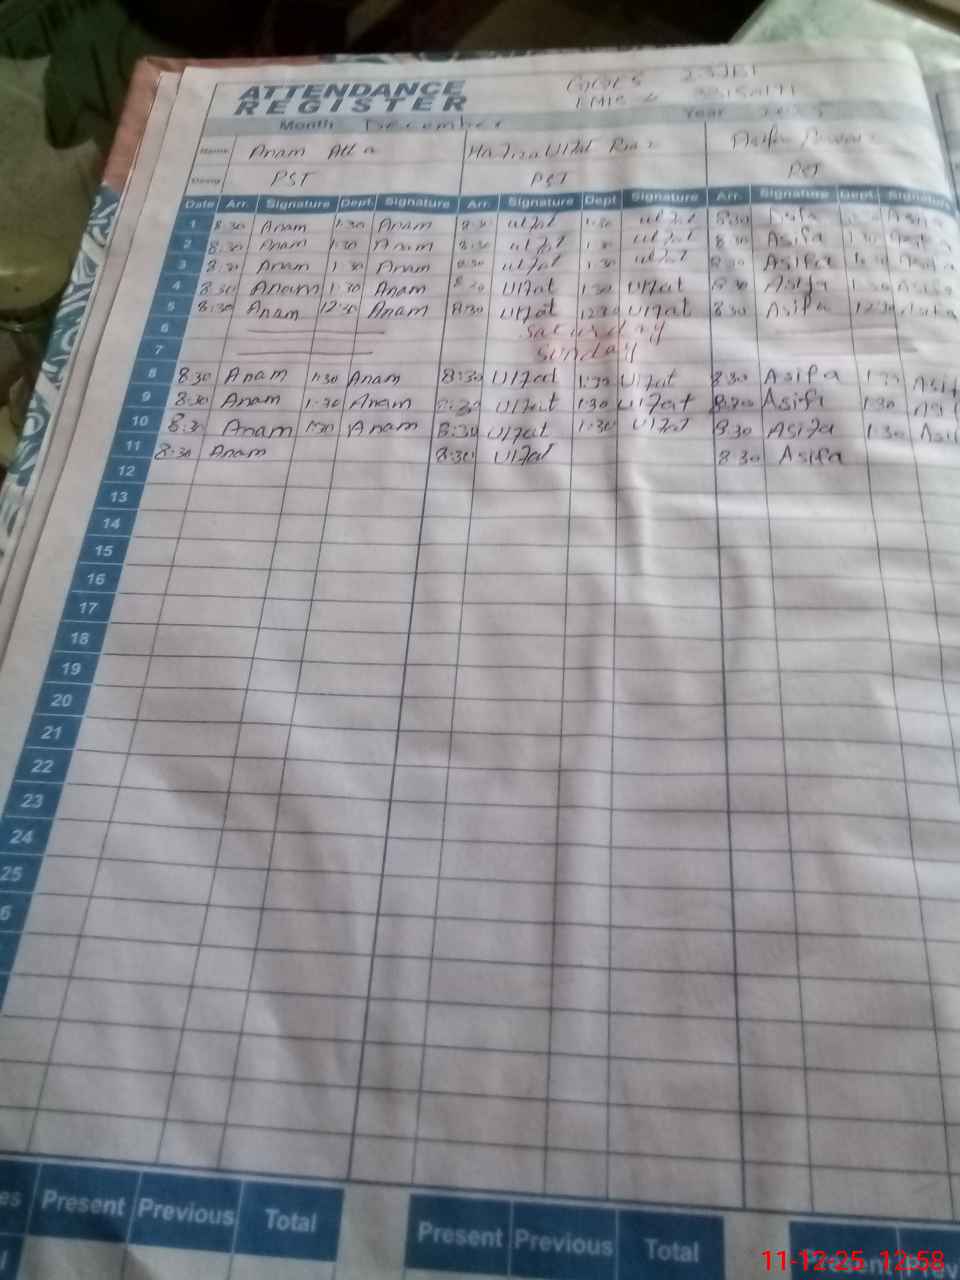 ATTENDANCE
REGISTER
Month December Year
Name Anam Atta Ulfat Riaz
Desig PST PST PST
Date Arr. Signature Dept. Signature Arr. Signature Dept Signature Arr. Signature Dept. Signature
1 8:30 Anam 1:30 Anam 8:30 Ulfat 1:30 Ulfat 8:30 Asifa
2 8:30 Anam 1:30 Anam 8:30 Ulfat 1:30 Ulfat 8:30 Asifa 1:30 Asifa
3 8:30 Anam 1:30 Anam 8:30 Ulfat 1:30 Ulfat 8:30 Asifa 1:30 Asifa
4 8:30 Anam 1:30 Anam 8:30 Ulfat 1:30 Ulfat 8:30 Asifa 1:30 Asifa
5 8:30 Anam 12:30 Anam 8:30 Ulfat 12:30 Ulfat 8:30 Asifa 12:30 Asifa
6 Saturday
7 Sunday
8 8:30 Anam 1:30 Anam 8:30 Ulfat 1:30 Ulfat 8:30 Asifa 1:30 Asif
9 8:30 Anam 1:30 Anam 8:30 Ulfat 1:30 Ulfat 8:30 Asifa 1:30 Asi
10 8:30 Anam 1:30 Anam 8:30 Ulfat 1:30 Ulfat 8:30 Asifa 1:30 Asi
11 8:30 Anam 8:30 Ulfat 8:30 Asifa
12
13
14
15
16
17
18
19
20
21
22
23
24
25
6
es Present Previous Total Present Previous Total Present Prev
11-12-25 12:58